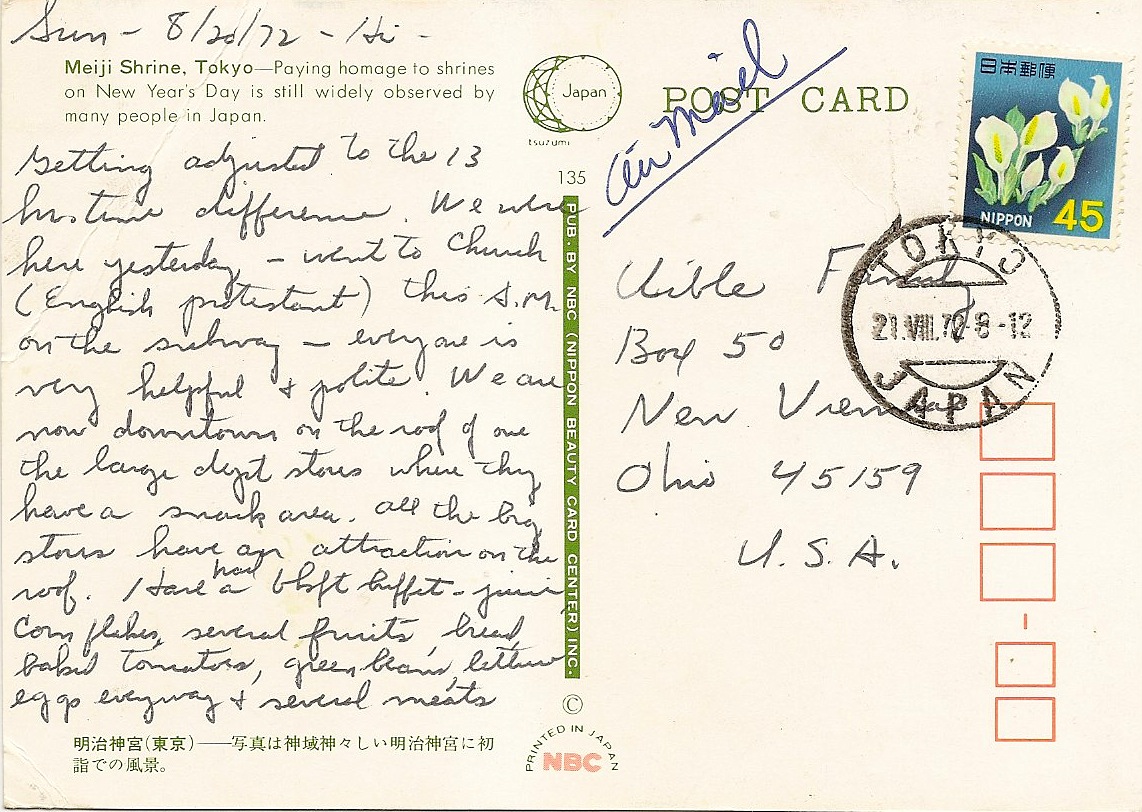 Sun - 8/20/72 - Hi -
Meiji Shrine, Tokyo—Paying homage to shrines
on New Year's Day is still widely observed by
many people in Japan.
Getting adjusted to the 13
hrs time difference. We were
here yesterday - went to Church
(English protestant) this A.M.
on the subway - everyone is
very helpful & polite. We are
now downtown on the roof of one
the large dept stores where they
have a snack area. All the big
stores have an attraction on the
roof. Have had a bkft buffet - juice
corn flakes, several fruits, bread,
baked tomatoes, green beans, lettuce
eggs everyway & several meats
明治神宮(東京)——写真は神域神々しい明治神宮に初
詣での風景。
Japan
tsuzumi
135
PUB. BY NBC (NIPPON BEAUTY CARD CENTER) INC.
©
PRINTED IN JAPAN
NBC
POST CARD
Air Mail
日本郵便
NIPPON 45
TOKYO
21.VIII.72 8-12
JAPAN
Uible Family
Box 50
New Vienna
Ohio 45159
U.S.A.